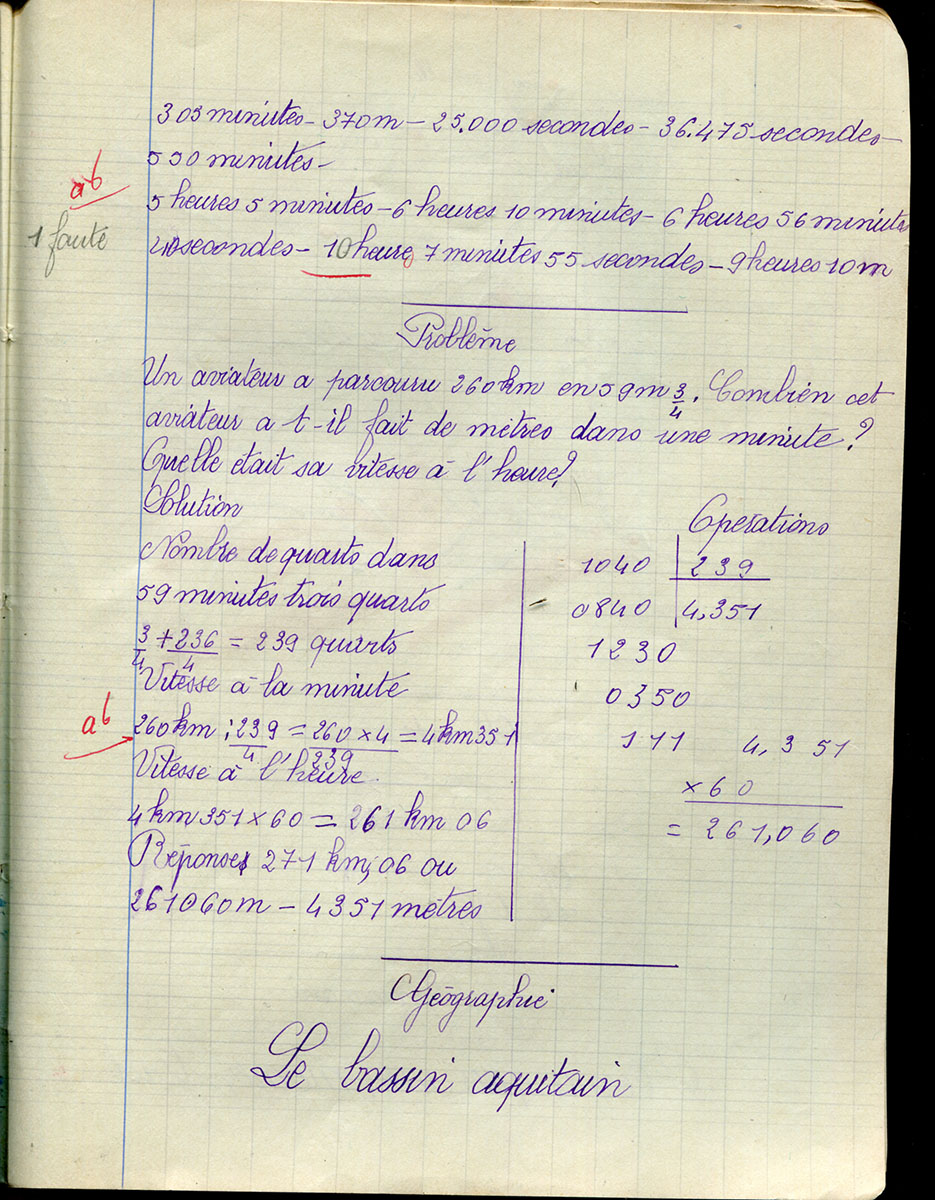 305 minutes - 370m - 25.000 secondes - 36.475 secondes -
550 minutes -
ab
5 heures 5 minutes - 6 heures 10 minutes - 6 heures 56 minutes
1 faute
40 secondes - 10 heures 7 minutes 55 secondes - 9 heures 10 m
Problème
Un aviateur a parcouru 260 km en 59 m 3/4. Combien cet
aviateur a t-il fait de mètres dans une minute?
Quelle était sa vitesse à l'heure?
Solution
Nombre de quarts dans
59 minutes trois quarts
3/4 + 236/4 = 239 quarts
Vitesse à la minute
ab
260 km : 239/4 = 260 × 4/239 = 4 km 351
Vitesse à l'heure
4 km 351 × 60 = 261 km 06
Réponses 271 km, 06 ou
261060 m - 4351 mètres
Opérations
1040 239
0840 4,351
1230
0350
111 4,351
×60
= 261,060
Géographie
Le bassin aquitain